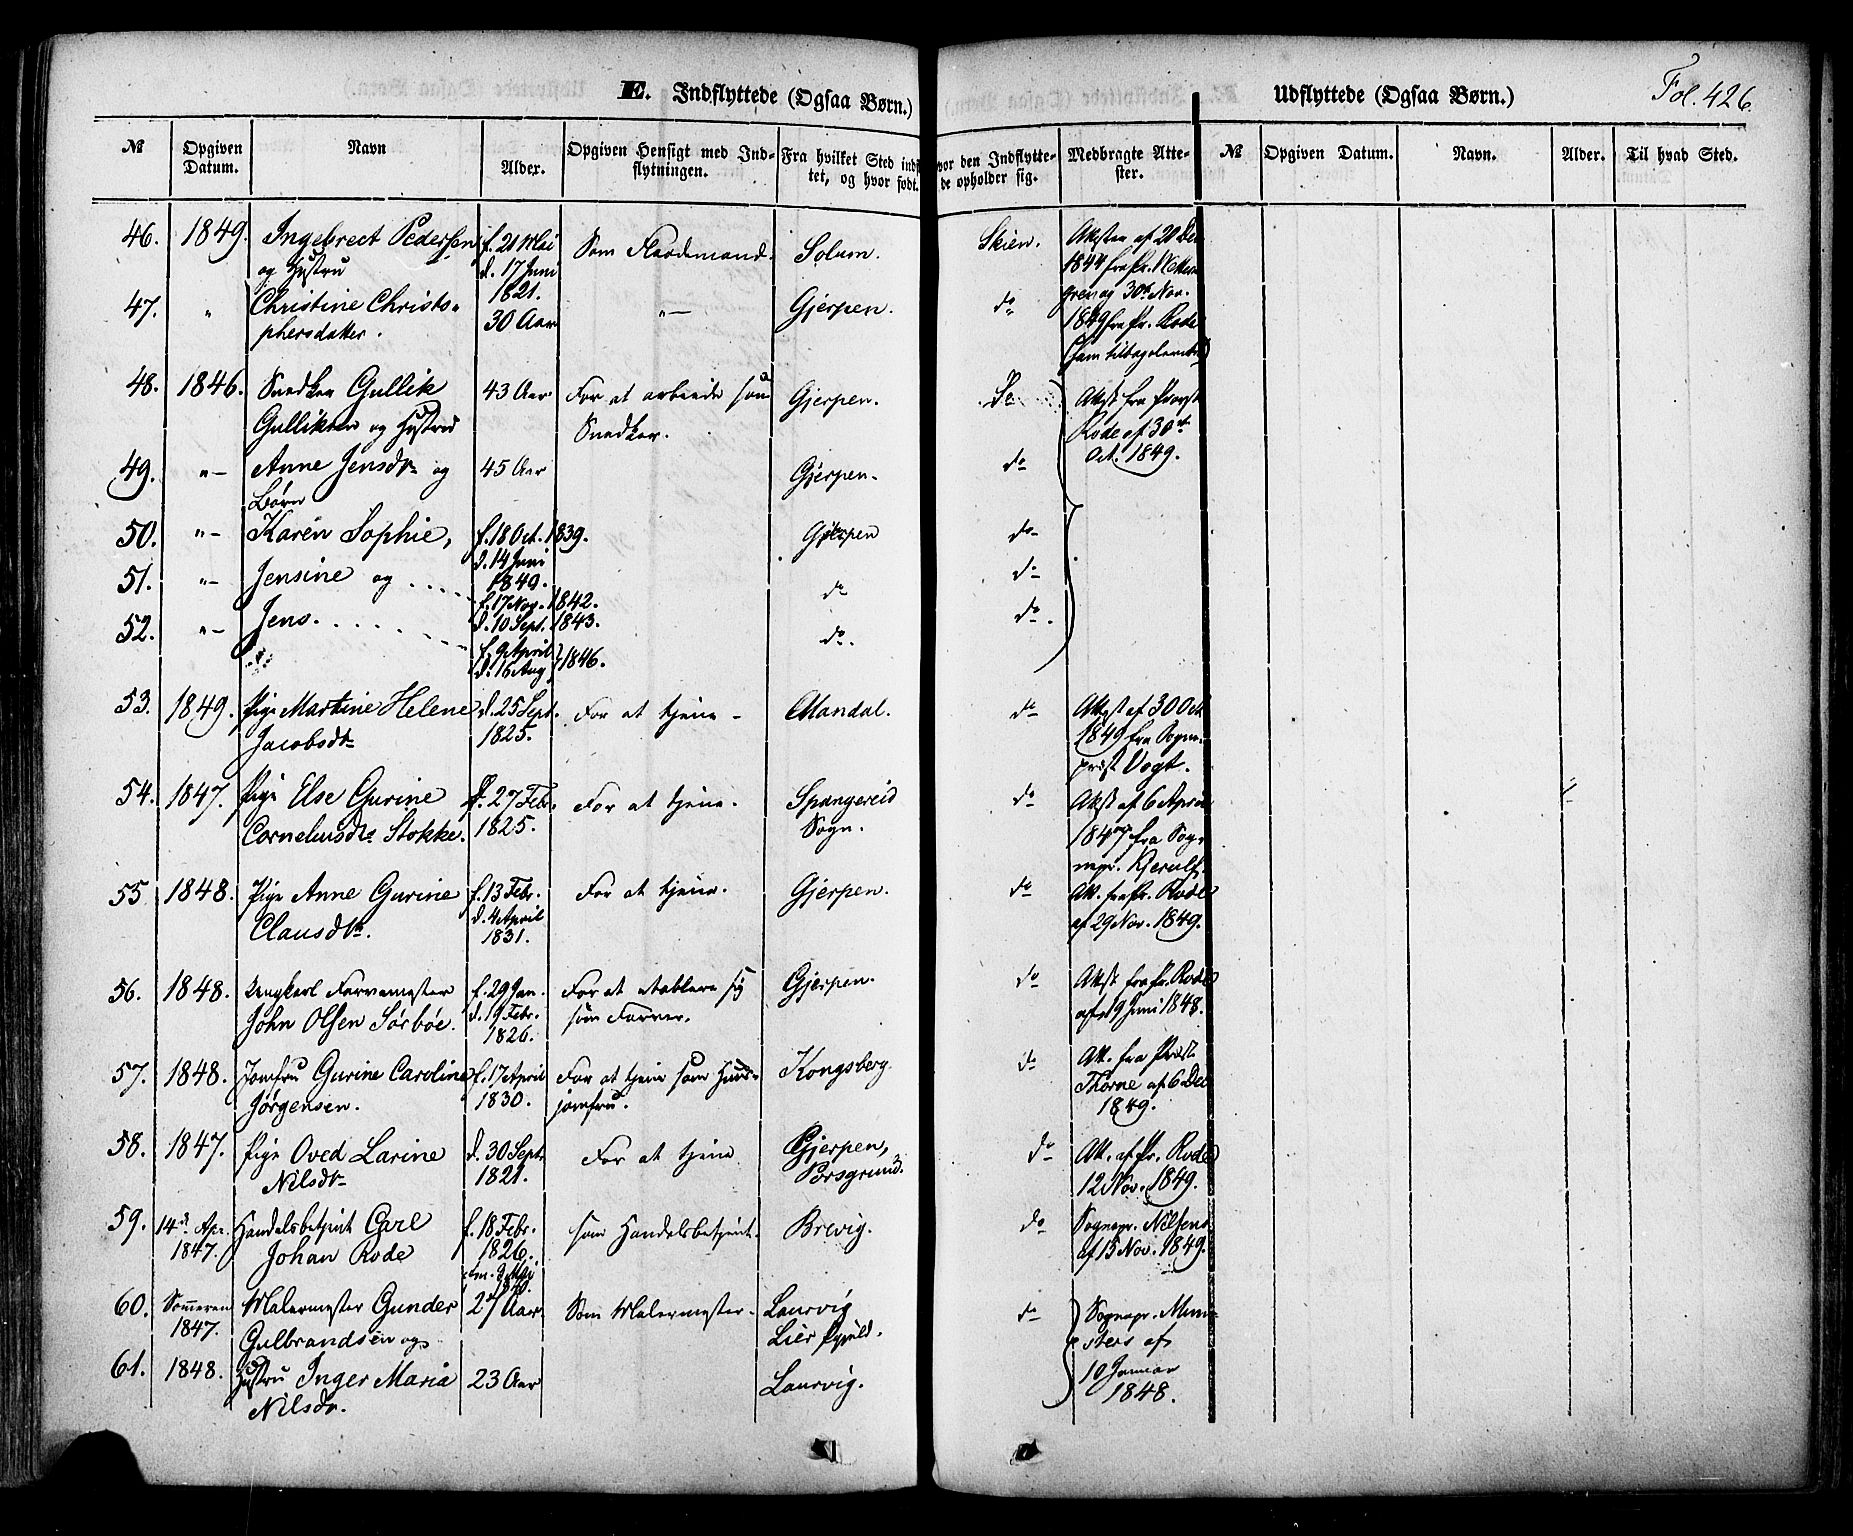 E. Indflyttede (Ogsaa Børn.)
Udflyttede (Ogsaa Børn.)
Fol. 426.
№ Opgiven Datum. Navn Alder. Opgiven Hensigt med Indflytningen. Fra hvilket Sted indf tet, og hvor født. vor den Indflyttede opholder sig. Medbragte Attester. № Opgiven Datum. Navn. Alder. Til hvad Sted.
46. 1849. Ingebrect Pedersen f. 21 Mai Som Solum. Skien. Attester af 21 Dec
og Hustru d. 17 Juni 1844 fra Pr.
1821. og 30te Nov.
47. " Christine Christo- 30 Aar "— Gjerpen. do 1849 fra Pr. Rode
phersdatter.
48. 1846. Snedker Gullik 43 Aar For at arbeide som Gjerpen. do Attst fra Provst
Gulliksen og Hustru Snedker. Rode af 30te
49. "— Anne Jensdtr og 45 Aar Gjerpen. do Oct. 1849.
Børn
50. "— Karen Sophie, f. 18 Oct. 1839. Gjerpen do
d. 14 Juni
51. "— Jensine og .... 1849. do do
f. 17 Nov. 1842.
52. "— Jens. .... d. 10 Sept. 1843. do. do.
f. 9 April
d. 16 Aug 1846.
53. 1849. Pige Martine Helene d. 25 Sept. For at tjene — Mandal. do Attest af 30 Oct
Jacobsdtr 1825. 1849 fra Sogne-
præst Vogt.
54. 1847. Pige Else Gurine f. 27 Febr. For at tjene. Spangereid do Attst af 6 April
Corneliusdtr Stokke. 1825. Sogn. 1847 fra Sog-
nepr. Kjerulf.
55 1848. Pige Anne Gurine f. 13 Febr. For at tjene. Gjerpen. do Att. fra Pr. Rode
Clausdtr. d. 4 April af 29 Nov. 1849.
1831.
56. 1848. Ungkarl Farvemester f. 29 Jan. For at etablere sig Gjerpen. do Attst fra Pr. Rode
John Olsen Sørbøe. d. 19 Febr. som Farver. af 19 Juni 1848.
1826.
57. 1848. Jomfru Gurine Caroline f. 17 April For at tjene som Huus- Kongsberg. do Att. fra Præst
Jørgensen. 1830. jomfru. Thorne af 6 Dec
1849.
58. 1847. Pige Oved Larine d. 30 Sept. For at tjene Gjerpen, do Att. af Pr. Rode
Nilsdtr 1821. Porsgrund. 12 Nov. 1849.
59. 14de Apr. Handelsbetjent Carl f. 18 Febr. som Handelsbetjent. Brevig. do Sognepr. Nilsens
1847. Johan Rode 1826. af 15 Nov. 1849.
60. Sommeren Malermester Gunder 27 Aar Som Malermester. Laurvig do Sognepr. Mun-
1847. Gulbrandsen og Lier sters af
61. 1848. Hustru Inger Maria 23 Aar Laurvig. 10 Januar
Nilsdr. 1848.